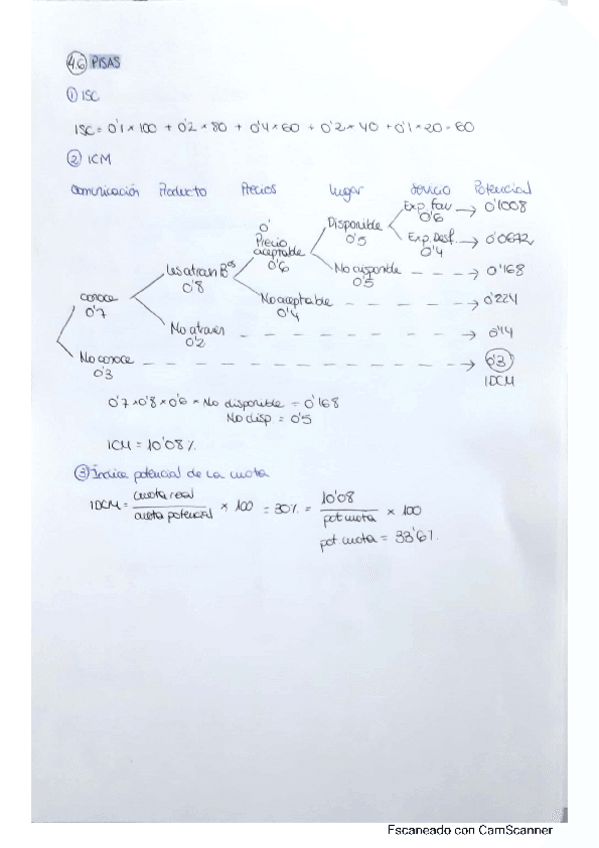 4.6 PISAS
① ISC
ISC = 0'1 x 100 + 0'2 x 80 + 0'4 x 60 + 0'2 x 40 + 0'1 x 20 = 60
② ICM
Comunicación Producto Precios Lugar Servicio Potencial
Exp. fav 0'6 → 0'1008
Disponible 0'5
Exp. Desf. 0'4 → 0'0672
0'
Precio aceptable 0'6
No disponible 0'5 → 0'168
Les atraen Bos 0'8
No aceptable 0'4 → 0'224
conoce 0'7
No atraen 0'2 → 0'14
No conoce 0'3 → 0'3
IDCM
0'7 x 0'8 x 0'6 x No disponible = 0'168
No disp = 0'5
ICM = 10'08%
③ Índice potencial de la cuota
IDCM = cuota real / cuota potencial x 100 = 30% = 10'08 / pot cuota x 100
pot cuota = 33'6%
Escaneado con CamScanner